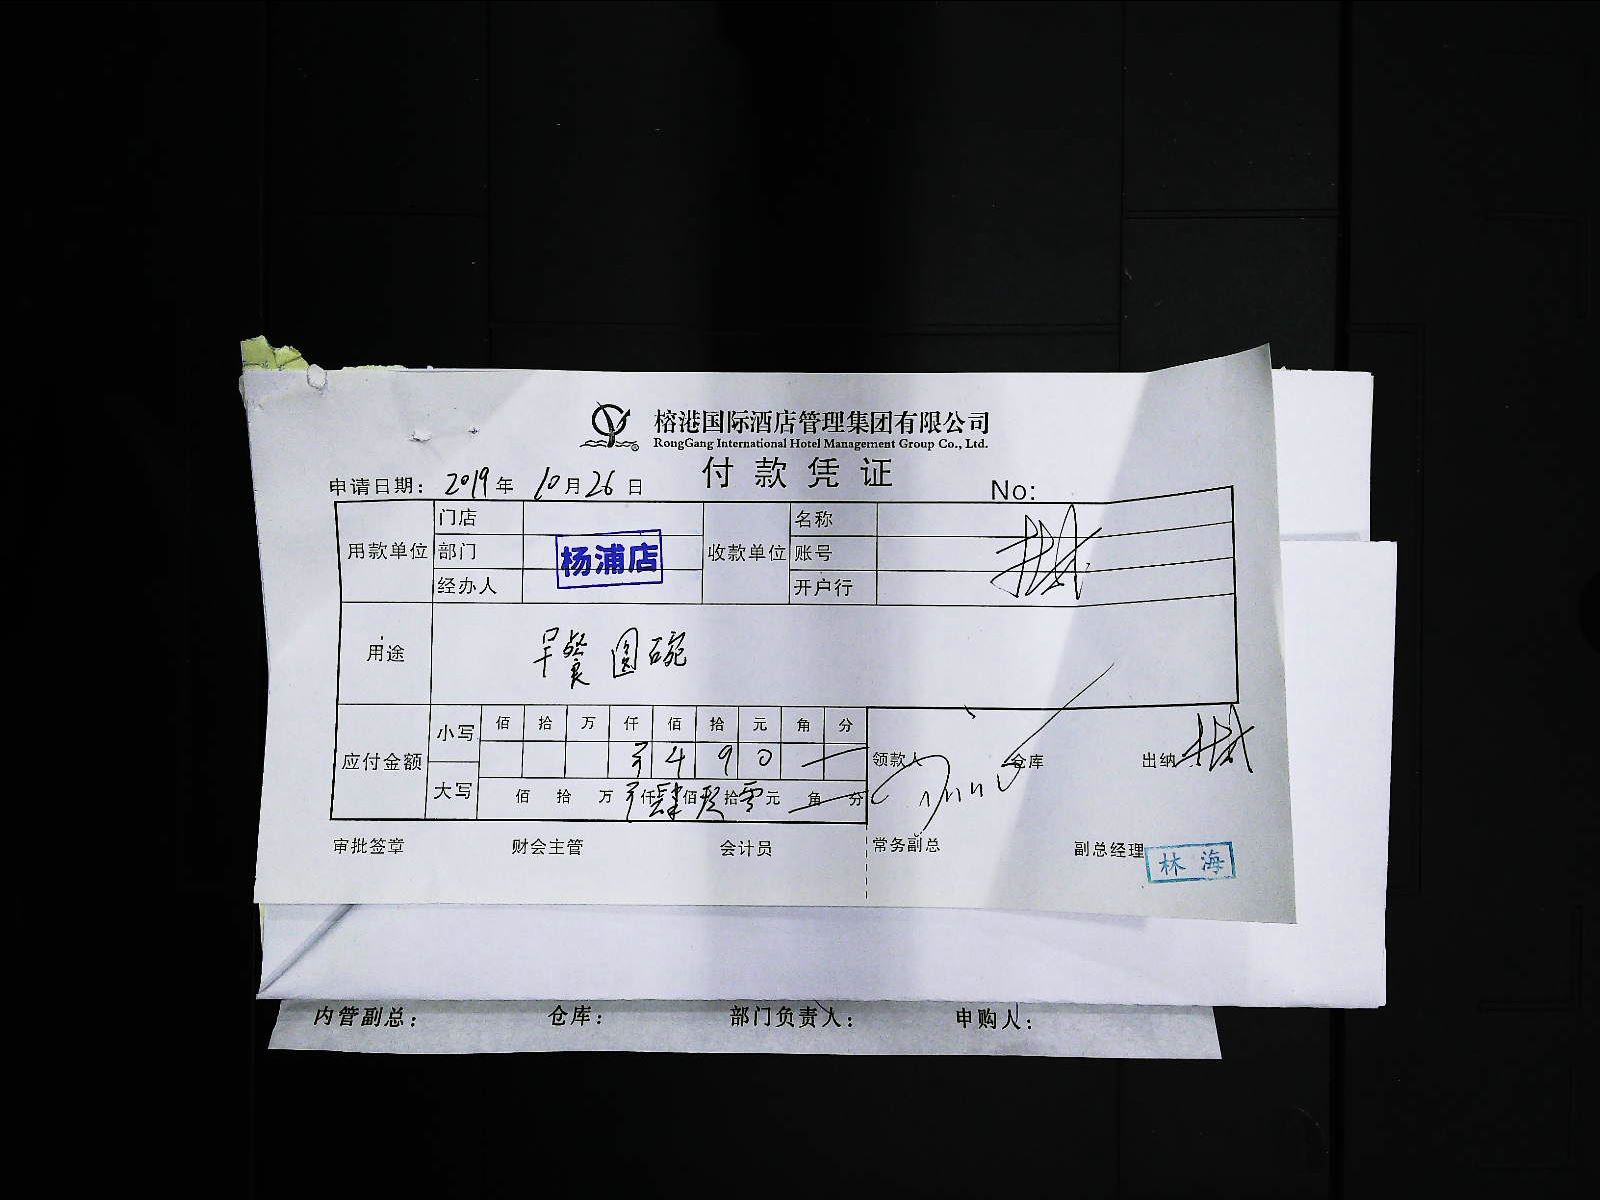 榕港国际酒店管理集团有限公司
RongGang International Hotel Management Group Co., Ltd.
付款凭证
申请日期: 2019年 10月26日 No:
用款单位 门店 收款单位 名称
部门 杨浦店 账号
经办人 开户行
用途 早餐圆碗
应付金额 小写 佰 拾 万 仟 佰 拾 元 角 分
¥ 4 9 0
大写 佰 拾 万 仟肆佰玖拾零元 角 分
领款人 仓库 出纳
审批签章 财会主管 会计员 常务副总 副总经理 林海
内管副总: 仓库: 部门负责人: 申购人: